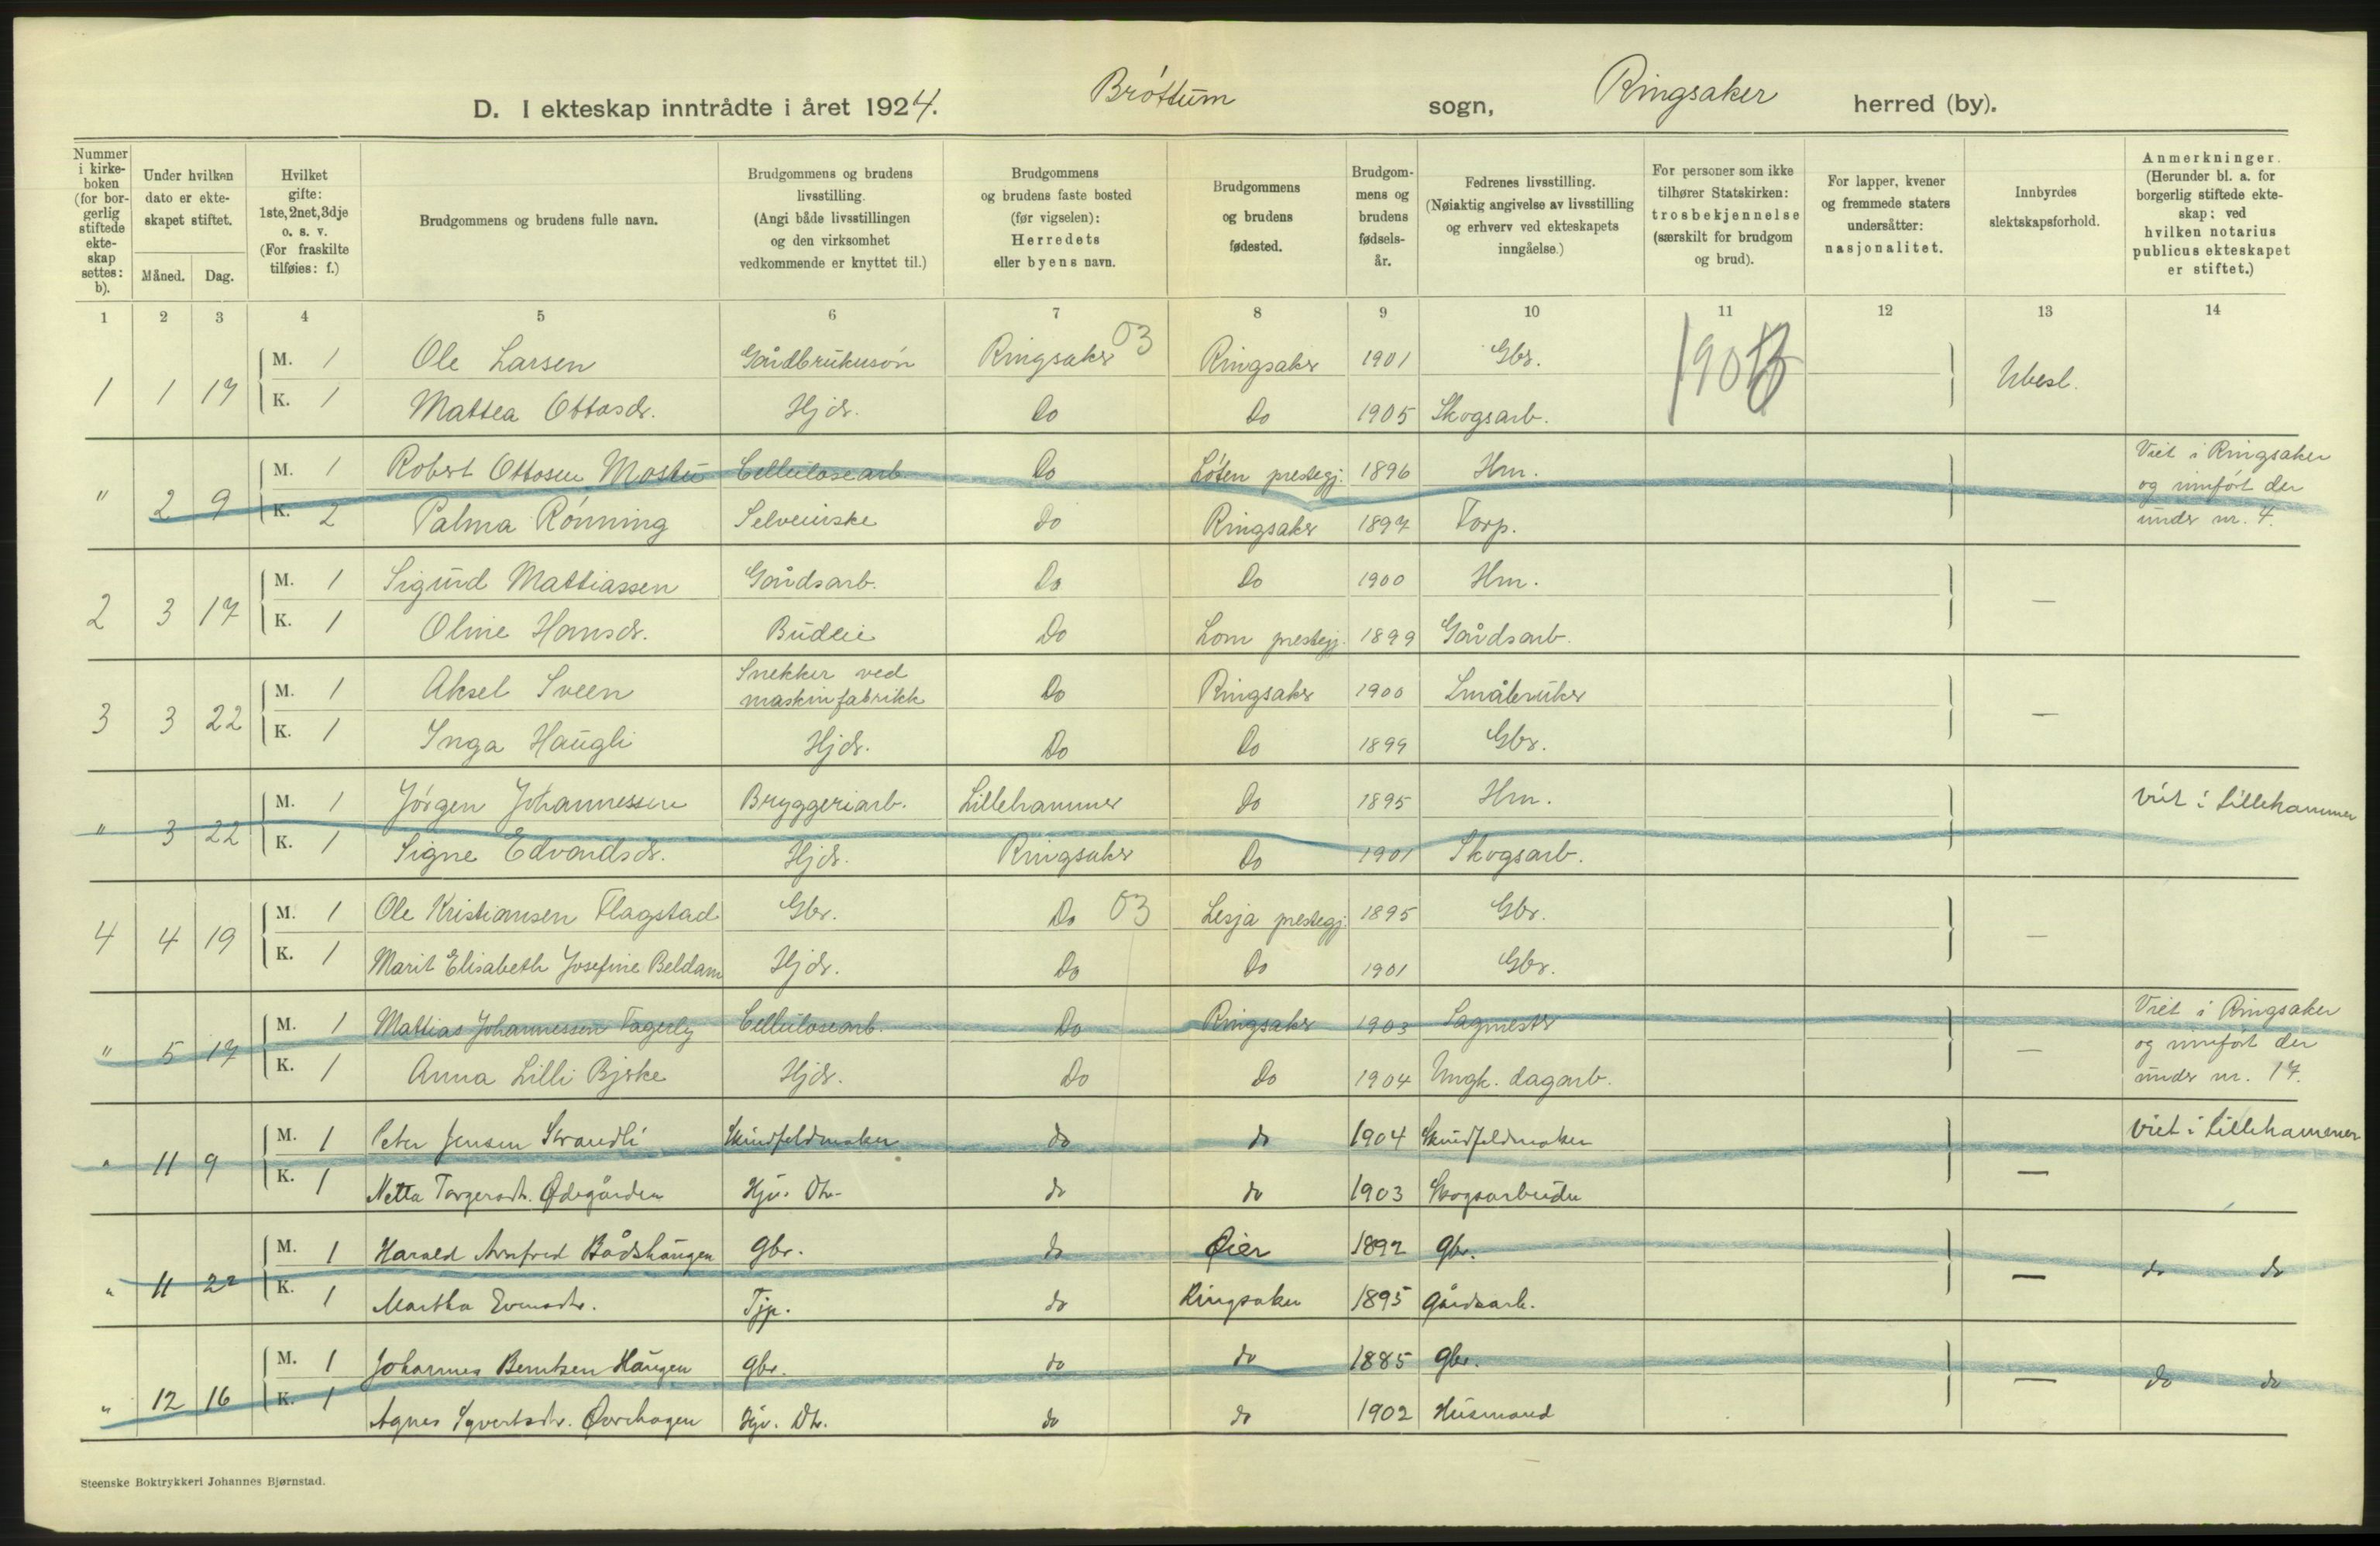 D. I ekteskap inntrådte i året 1924. Brøttum sogn, Ringsaker herred (by).
Nummer i kirke-boken (for bor-gerlig stiftede ekte-skap settes: b).
Under hvilken dato er ekte-skapet stiftet.
Måned. Dag.
Hvilket gifte: 1ste, 2net, 3dje o. s. v. (For fraskilte tilføies: f.)
Brudgommens og brudens fulle navn.
Brudgommens og brudens livsstilling. (Angi både livsstillingen og den virksomhet vedkommende er knyttet til.)
Brudgommens og brudens faste bosted (før vigselen): Herredets eller byens navn.
Brudgommens og brudens fødested.
Brudgom-mens og brudens fødsels-år.
Fedrenes livsstilling. (Nøiaktig angivelse av livsstilling og erhverv ved ekteskapets inngåelse.)
For personer som ikke tilhører Statskirken: trosbekjennelse (særskilt for brudgom og brud).
For lapper, kvener og fremmede staters undersåtter: nasjonalitet.
Innbyrdes slektskapsforhold.
Anmerkninger. (Herunder bl. a. for borgerlig stiftede ekte-skap; ved hvilken notarius publicus ekteskapet er stiftet.)
1 2 3 4 5 6 7 8 9 10 11 12 13 14
1 1 17 M. 1 Ole Larsen Gårdbrukersøn Ringsaker 03 Ringsaker 1901 Gbr. Ubesl.
K. 1 Mattea Ottosdr. Hjdr. Do Do 1905 Skogsarb.
" 2 9 M. 1 Robert Ottosen Mostu Cellulosearb. Do Løten prestegj. 1896 Hm. — Viet i Ringsaker og innført der under nr. 4.
K. 2 Palma Rønning Selveierske Do Ringsaker 1897 Torp.
2 3 17 M. 1 Sigurd Mattiassen Gårdsarb. Do Do 1900 Hm. —
K. 1 Oline Hansdr. Budeie Do Lom prestegj. 1899 Gårdsarb.
3 3 22 M. 1 Aksel Sveen Snekker ved maskinfabrikk Do Ringsaker 1900 Småbruker —
K. 1 Inga Haugli Hjdr. Do Do 1899 Gbr.
" 3 22 M. 1 Jørgen Johannessen Bryggeriarb. Lillehammer Do 1895 Hm. — Viet i Lillehammer
K. 1 Signe Edvardsdr. Hjdr. Ringsaker Do 1901 Skogsarb.
4 4 19 M. 1 Ole Kristiansen Flagstad Gbr. Do 03 Lesja prestegj. 1895 Gbr. —
K. 1 Marit Elisabeth Josefine Beldam Hjdr. Do Do 1901 Gbr.
" 5 17 M. 1 Mattias Johannessen Fagerly Cellulosearb. Do Ringsaker 1903 Sagmester — Viet i Ringsaker og innført der under nr. 17.
K. 1 Anna Lilli Bjerke Hjdr. Do Do 1904 Ungk. dagarb.
" 11 9 M. 1 Peter Jensen Strandli Skindfeldmaker do do 1904 Skindfeldmaker — Viet i Lillehammer
K. 1 Netta Torgersdtr. Ødegården Hjv. Dtr. do do 1903 Skogsarbeider
" 11 22 M. 1 Harald Arnfred Bådshaugen Gbr. do Øier 1892 Gbr. — do do
K. 1 Martha Evensdtr. Tjp. do Ringsaker 1895 Gårdsarb.
" 12 16 M. 1 Johannes Berntsen Haugen Gbr. do do 1885 Gbr. — do do
K. 1 Agnes Syvertsdtr. Øverhagen Hjv. Dtr. do do 1902 Husmand
Steenske Boktrykkeri Johannes Bjørnstad.